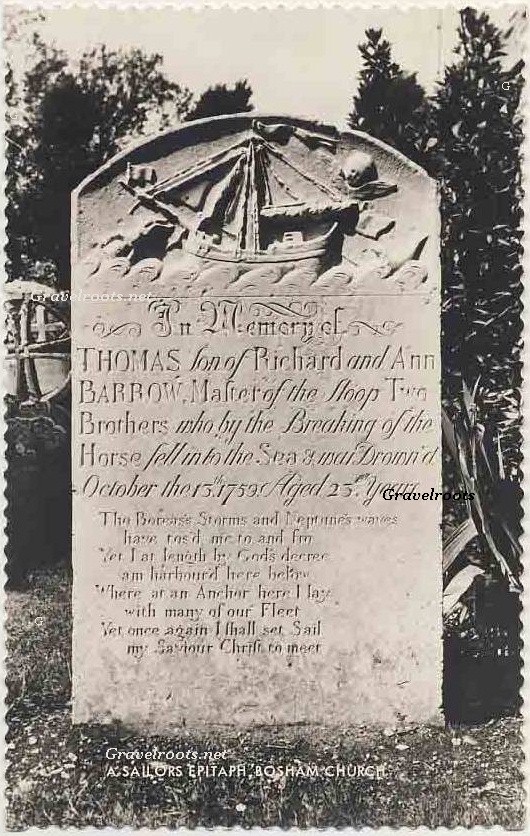 G
Gravelroots.net
In Memory of
THOMAS ſon of Richard and Ann
BARROW, Maſter of the ſloop Two
Brothers who by the Breaking of the
Horse fell into the Sea & was Drown'd
October the 13th 1759. Aged 23 Years
Gravelroots
Tho Boreas's Storms and Neptune's waves
have tos'd me to and fro
Yet I at length by God's decree
am harbour'd here below
Where at an Anchor here I lay
with many of our Fleet
Yet once again I shall set Sail
my Saviour Christ to meet
G
Gravelroots.net
A SAILORS EPITAPH, BOSHAM CHURCH.